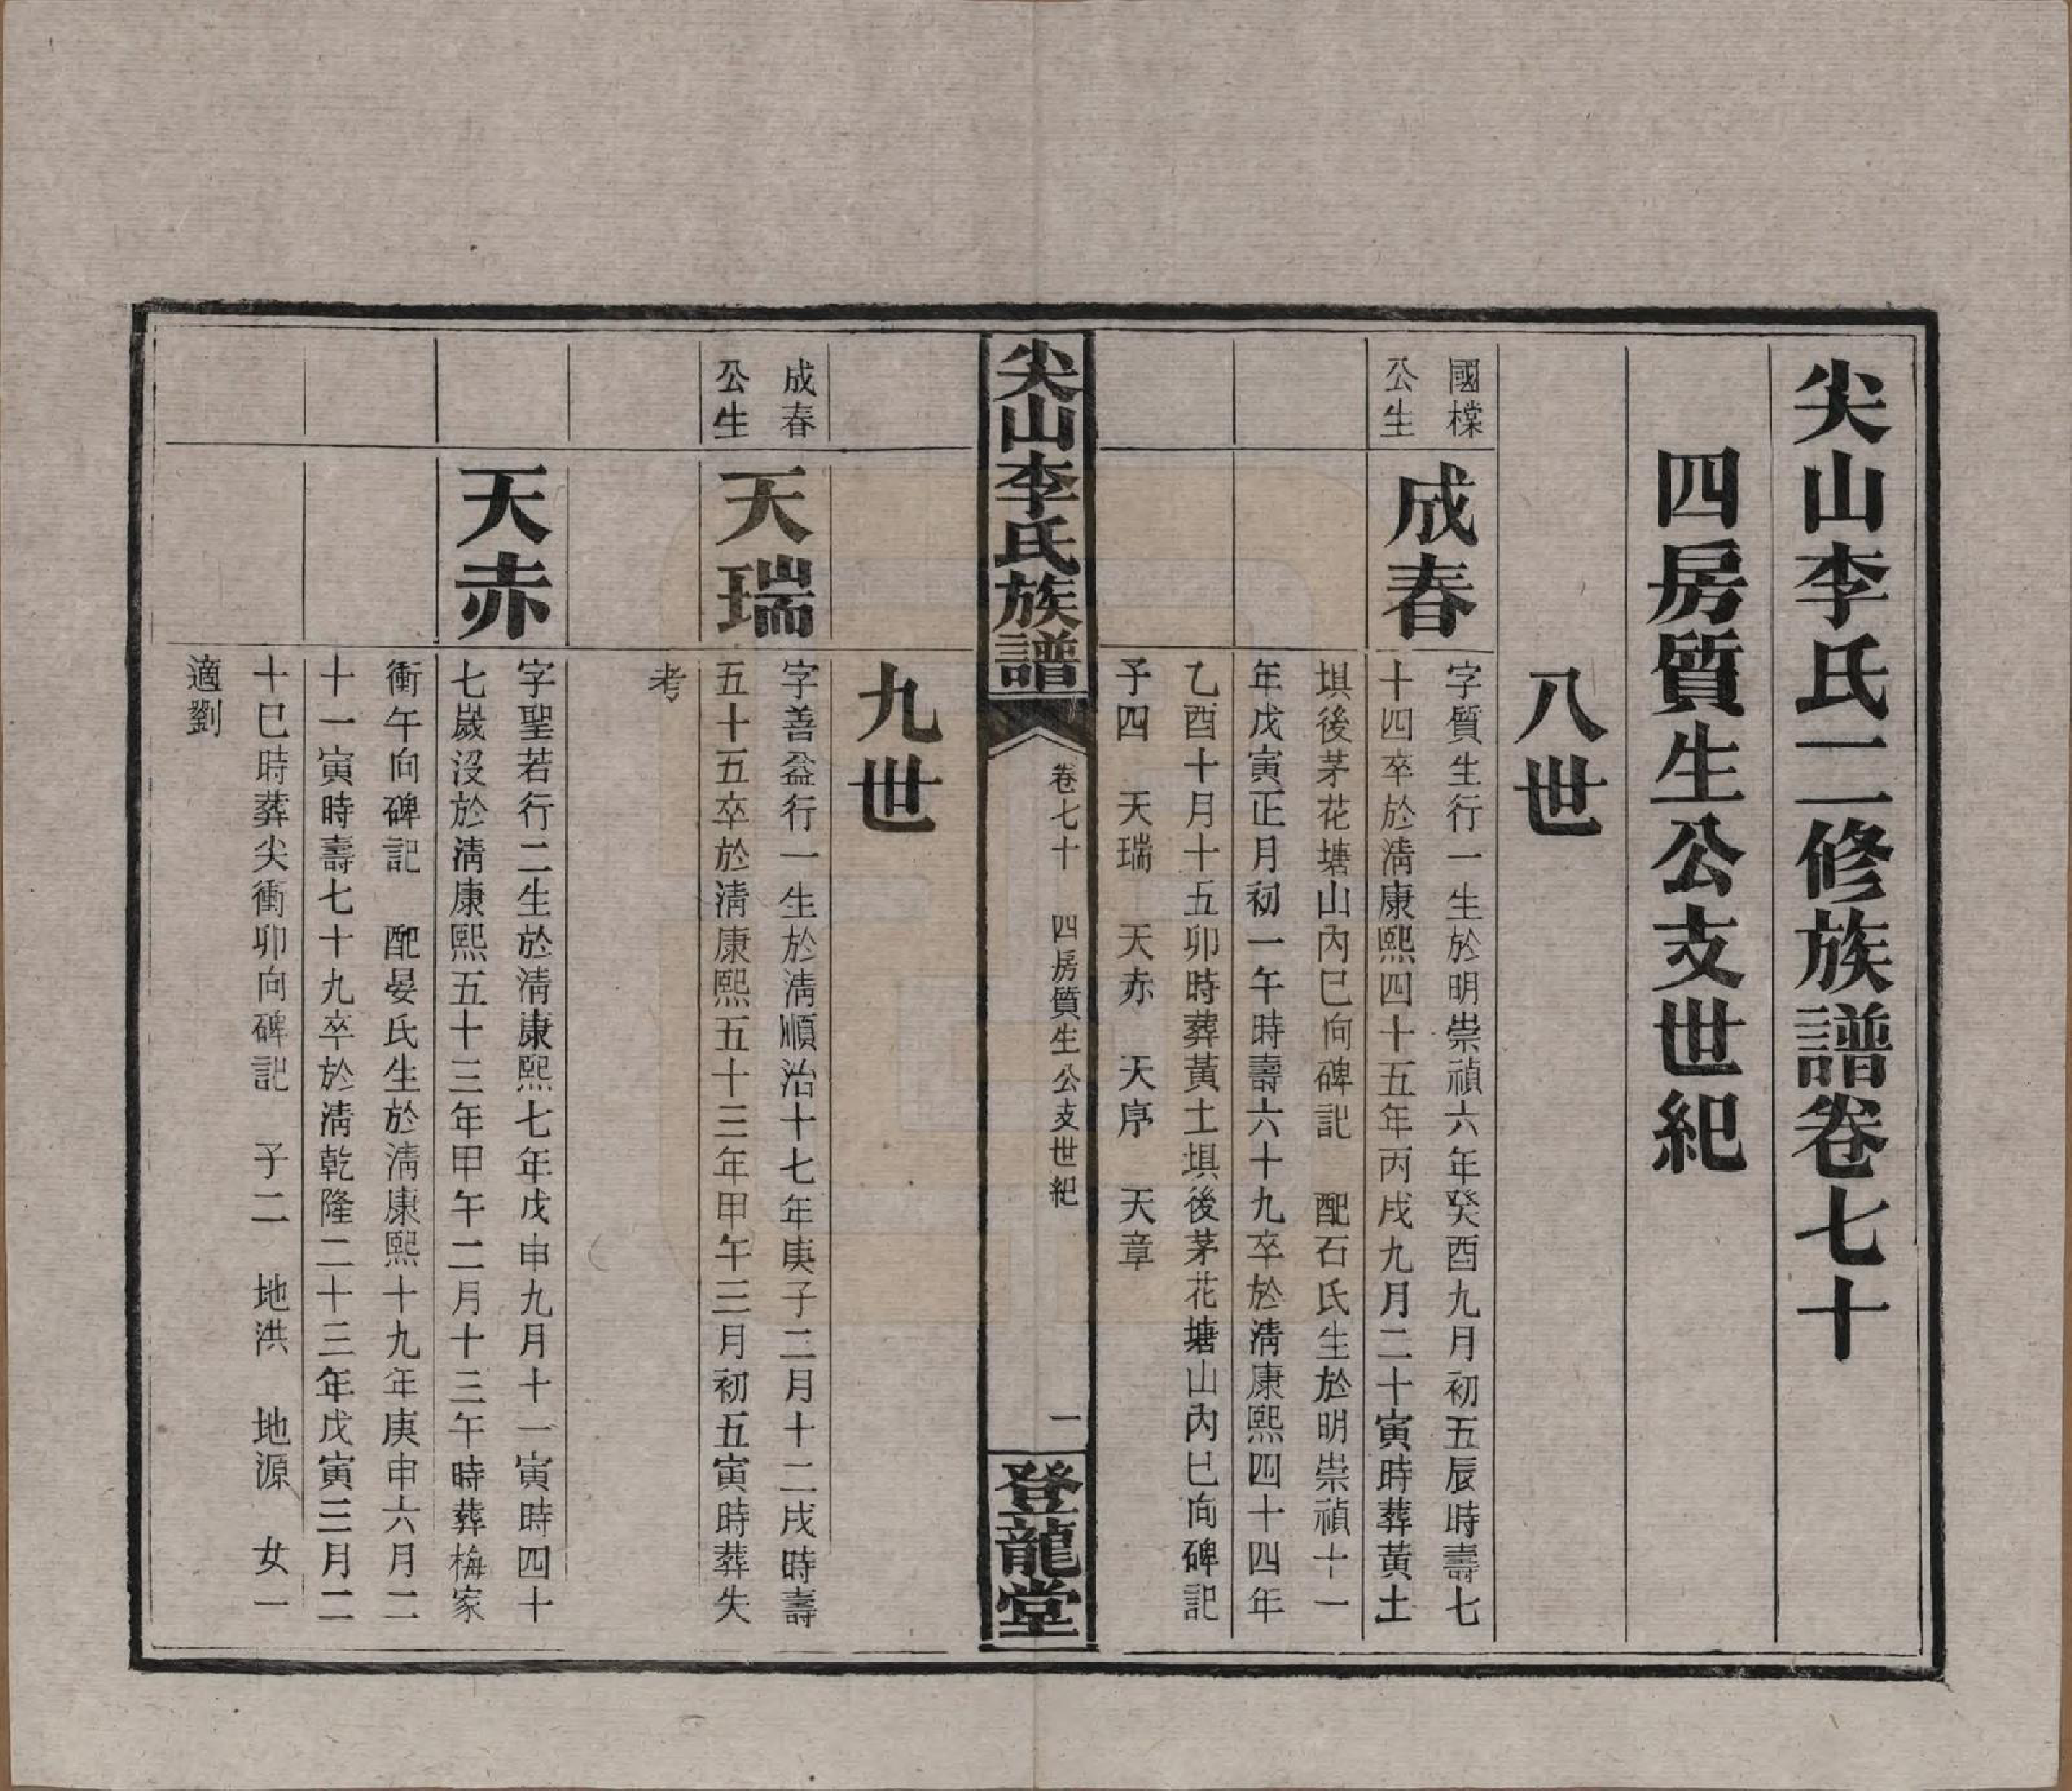 尖山李氏二修族譜卷七十
四房質生公支世紀
八世
國檪
公生
成春
字質生行一生於明崇禎六年癸酉九月初五辰時壽七
十四卒於清康熙四十五年丙戌九月二十寅時葬黃土
埧後茅花塘山內巳向碑記　配石氏生於明崇禎十一
年戊寅正月初一午時壽六十九卒於清康熙四十四年
乙酉十月十五卯時葬黃土埧後茅花塘山內巳向碑記
子四　天瑞　天赤　天序　天章
尖山李氏族譜
卷七十　四房質生公支世紀
一
登龍堂
九世
成春
公生
天瑞
字善益行一生於清順治十七年庚子二月十二戌時壽
五十五卒於清康熙五十三年甲午三月初五寅時葬失
考
天赤
字聖若行二生於清康熙七年戊申九月十一寅時四十
七歲沒於清康熙五十三年甲午二月十三午時葬梅家
衝午向碑記　配晏氏生於清康熙十九年庚申六月二
十一寅時壽七十九卒於清乾隆二十三年戊寅三月二
十巳時葬尖衝卯向碑記　子二　地洪　地源　女一
適劉